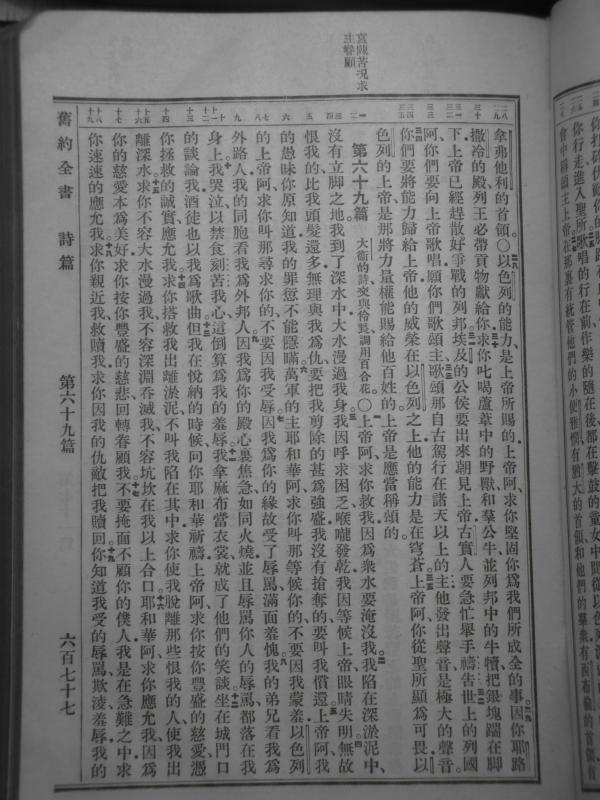 哀陳苦況求
主眷顧
拿弗他利的首領○以色列的能力、是上帝所賜的上帝阿、求你堅固你爲我們所成全的事因你耶路
撒冷的殿列王必帶貢物獻給你求你叱喝蘆葦中的野獸和羣公牛並列邦中的牛犢把銀塊踹在脚
下上帝已經趕散好爭戰的列邦埃及的公侯要出來朝見上帝古實人要急忙舉手禱告世上的列國
阿、你們要向上帝歌唱願你們歌頌主歌頌那自古駕行在諸天以上的主他發出聲音是極大的聲音
你們要將能力歸給上帝他的威榮在以色列之上他的能力是在穹蒼上帝阿你從聖所顯爲可畏以
色列的上帝是那將力量權能賜給他百姓的上帝是應當稱頌的
第六十九篇 大衛的詩交與伶長調用百合花 ○上帝阿、求你救我因爲衆水要淹沒我我陷在深淤泥中、
沒有立脚之地我到了深水中大水漫過我身我因呼求困乏喉嚨發乾我因等候上帝眼睛失明無故
恨我的比我頭髮還多無理與我爲仇要把我剪除的甚爲強盛我沒有搶奪的要叫我償還上帝阿我
的愚昧你原知道我的罪愆不能隱瞞萬軍的主耶和華阿求你叫那等候你的不要因我蒙羞以色列
的上帝阿求你叫那尋求你的不要因我受辱因我爲你的緣故受了辱罵滿面羞愧我的弟兄看我爲
外路人我的同胞看我爲外邦人因我爲你的殿心裏焦急如同火燒並且辱罵你人的辱罵都落在我
身上我哭泣以禁食刻苦我心這倒算爲我的羞辱我拿麻布當衣裳就成了他們的笑談坐在城門口
的談論我酒徒也以我爲歌曲但我在悅納的時候向你耶和華祈禱上帝阿求你按你豐盛的慈愛憑
你拯救的誠實應允我求你搭救我出離淤泥不叫我陷在其中求你使我脫離那些恨我的人使我出
離深水求你不容大水漫過我不容深淵吞滅我不容坑坎在我以上合口耶和華阿求你應允我因爲
你的慈愛本爲美好求你按你豐盛的慈悲回轉眷顧我不要掩面不顧你的僕人我是在急難之中求
你速速的應允我求你親近我救贖我求你因我的仇敵把我贖回你知道我受的辱罵欺凌羞辱我的
舊約全書 詩篇 第六十九篇 六百七十七